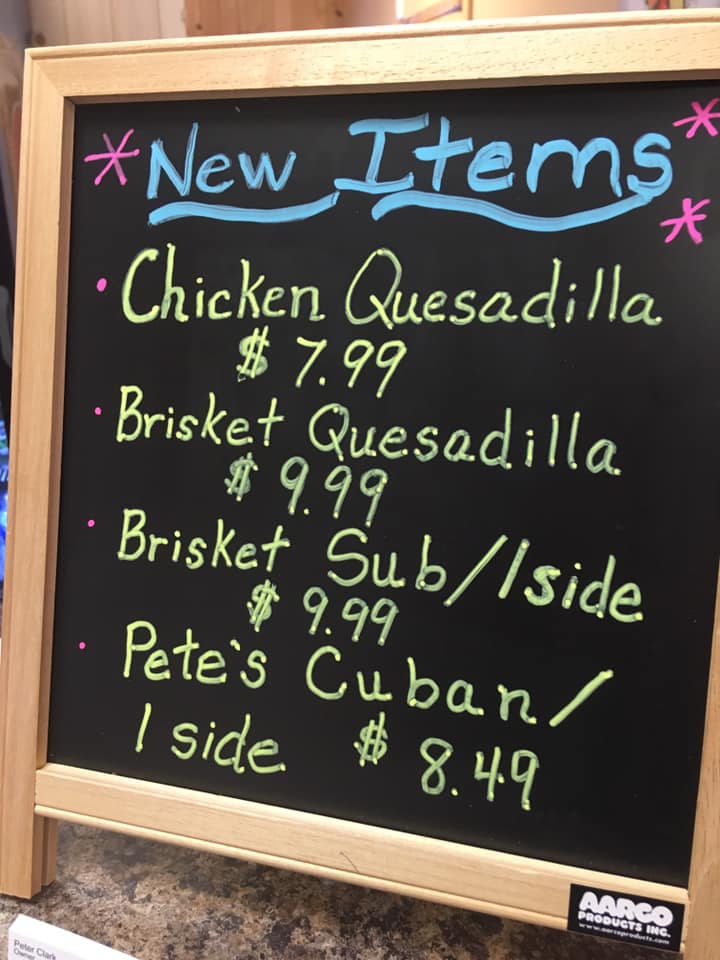 * New Items *
*
• Chicken Quesadilla
$ 7.99
• Brisket Quesadilla
$ 9.99
• Brisket Sub/1side
$ 9.99
• Pete's Cuban/
1 side $ 8.49
AARCO
PRODUCTS INC.
www.aarcoproducts.com
Peter Clark
Owner